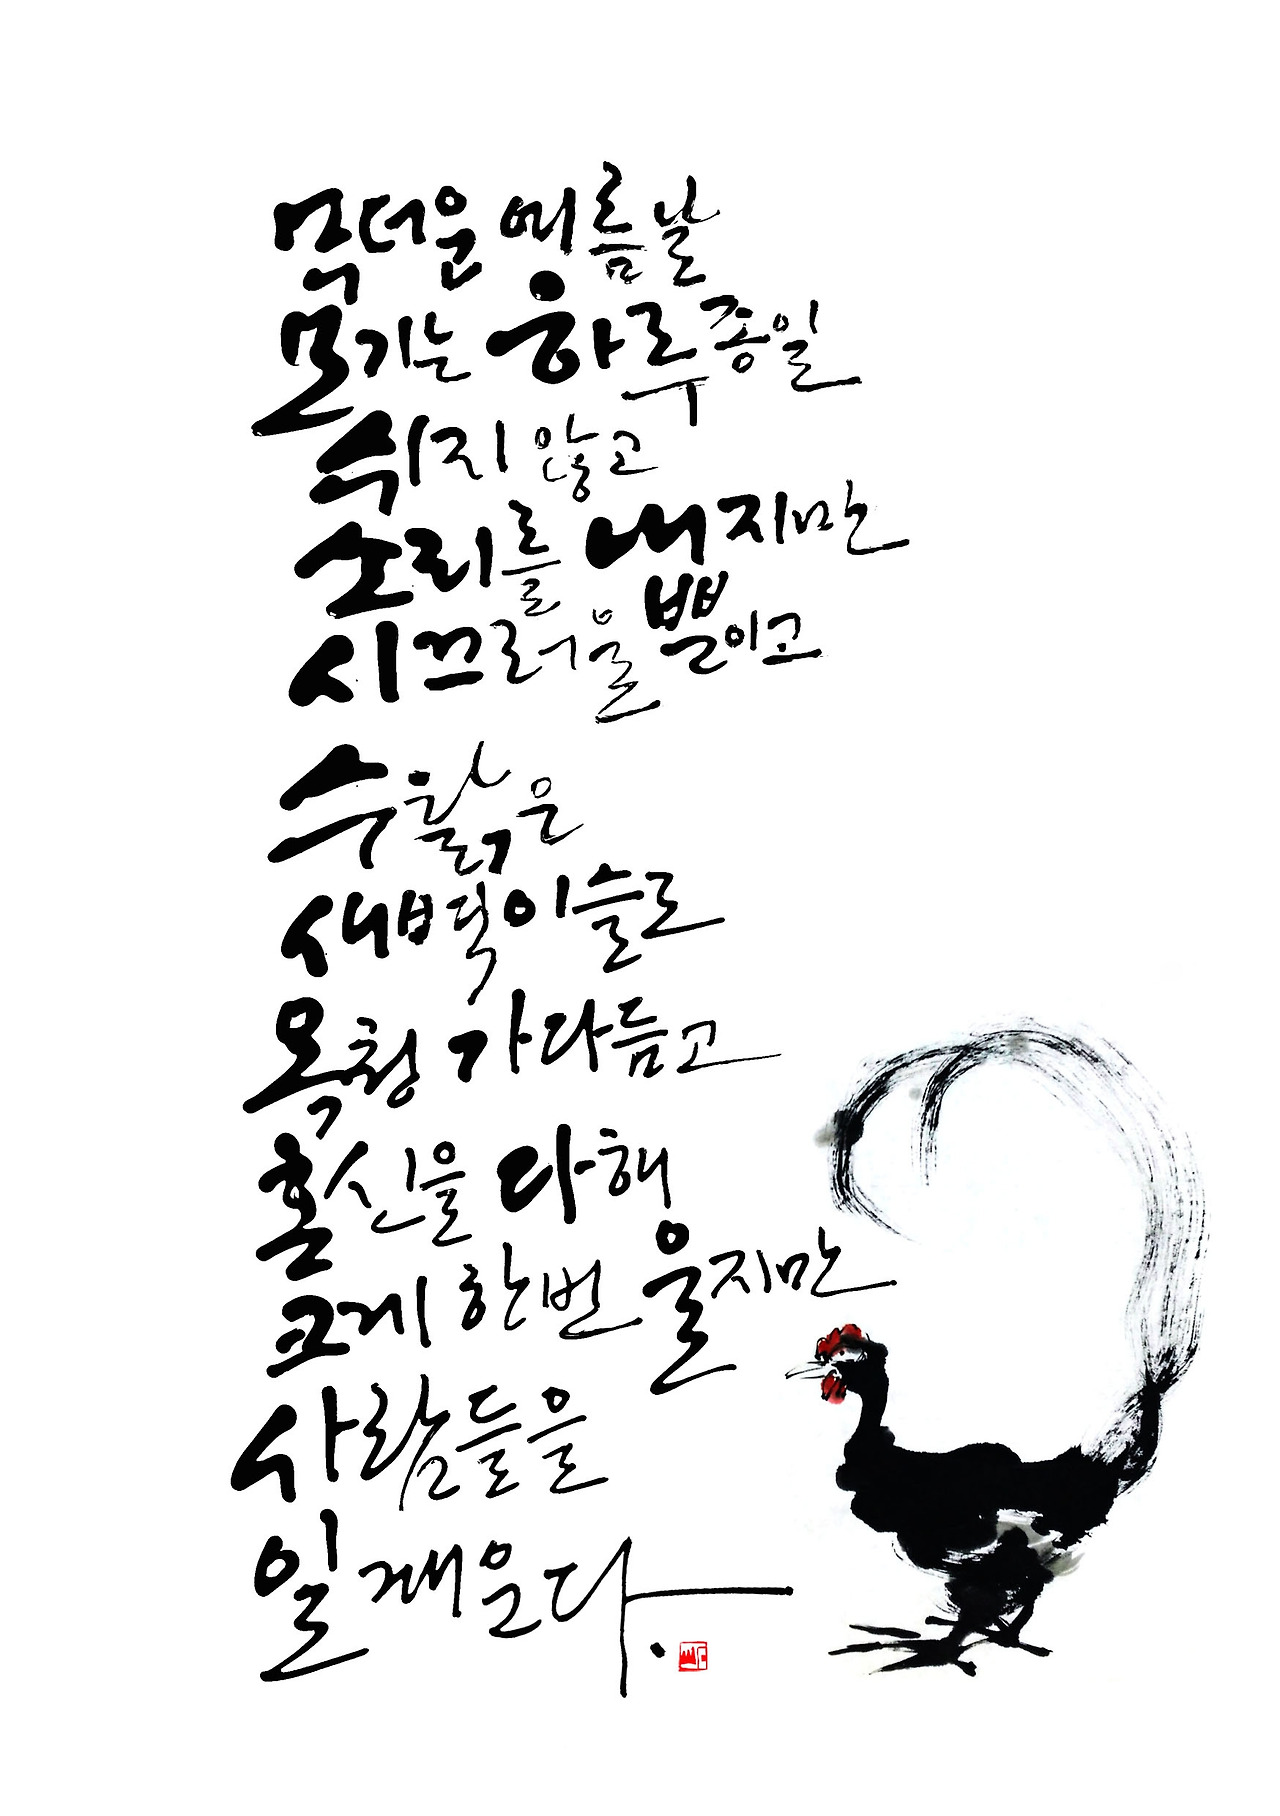 무더운 여름날
모기는 하루종일
쉬지 않고
소리를 내지만
시끄러울 뿐이고
수탉은
새벽이슬로
목청 가다듬고
혼신을 다해
크게 한번 울지만
사람들을
일깨운다.